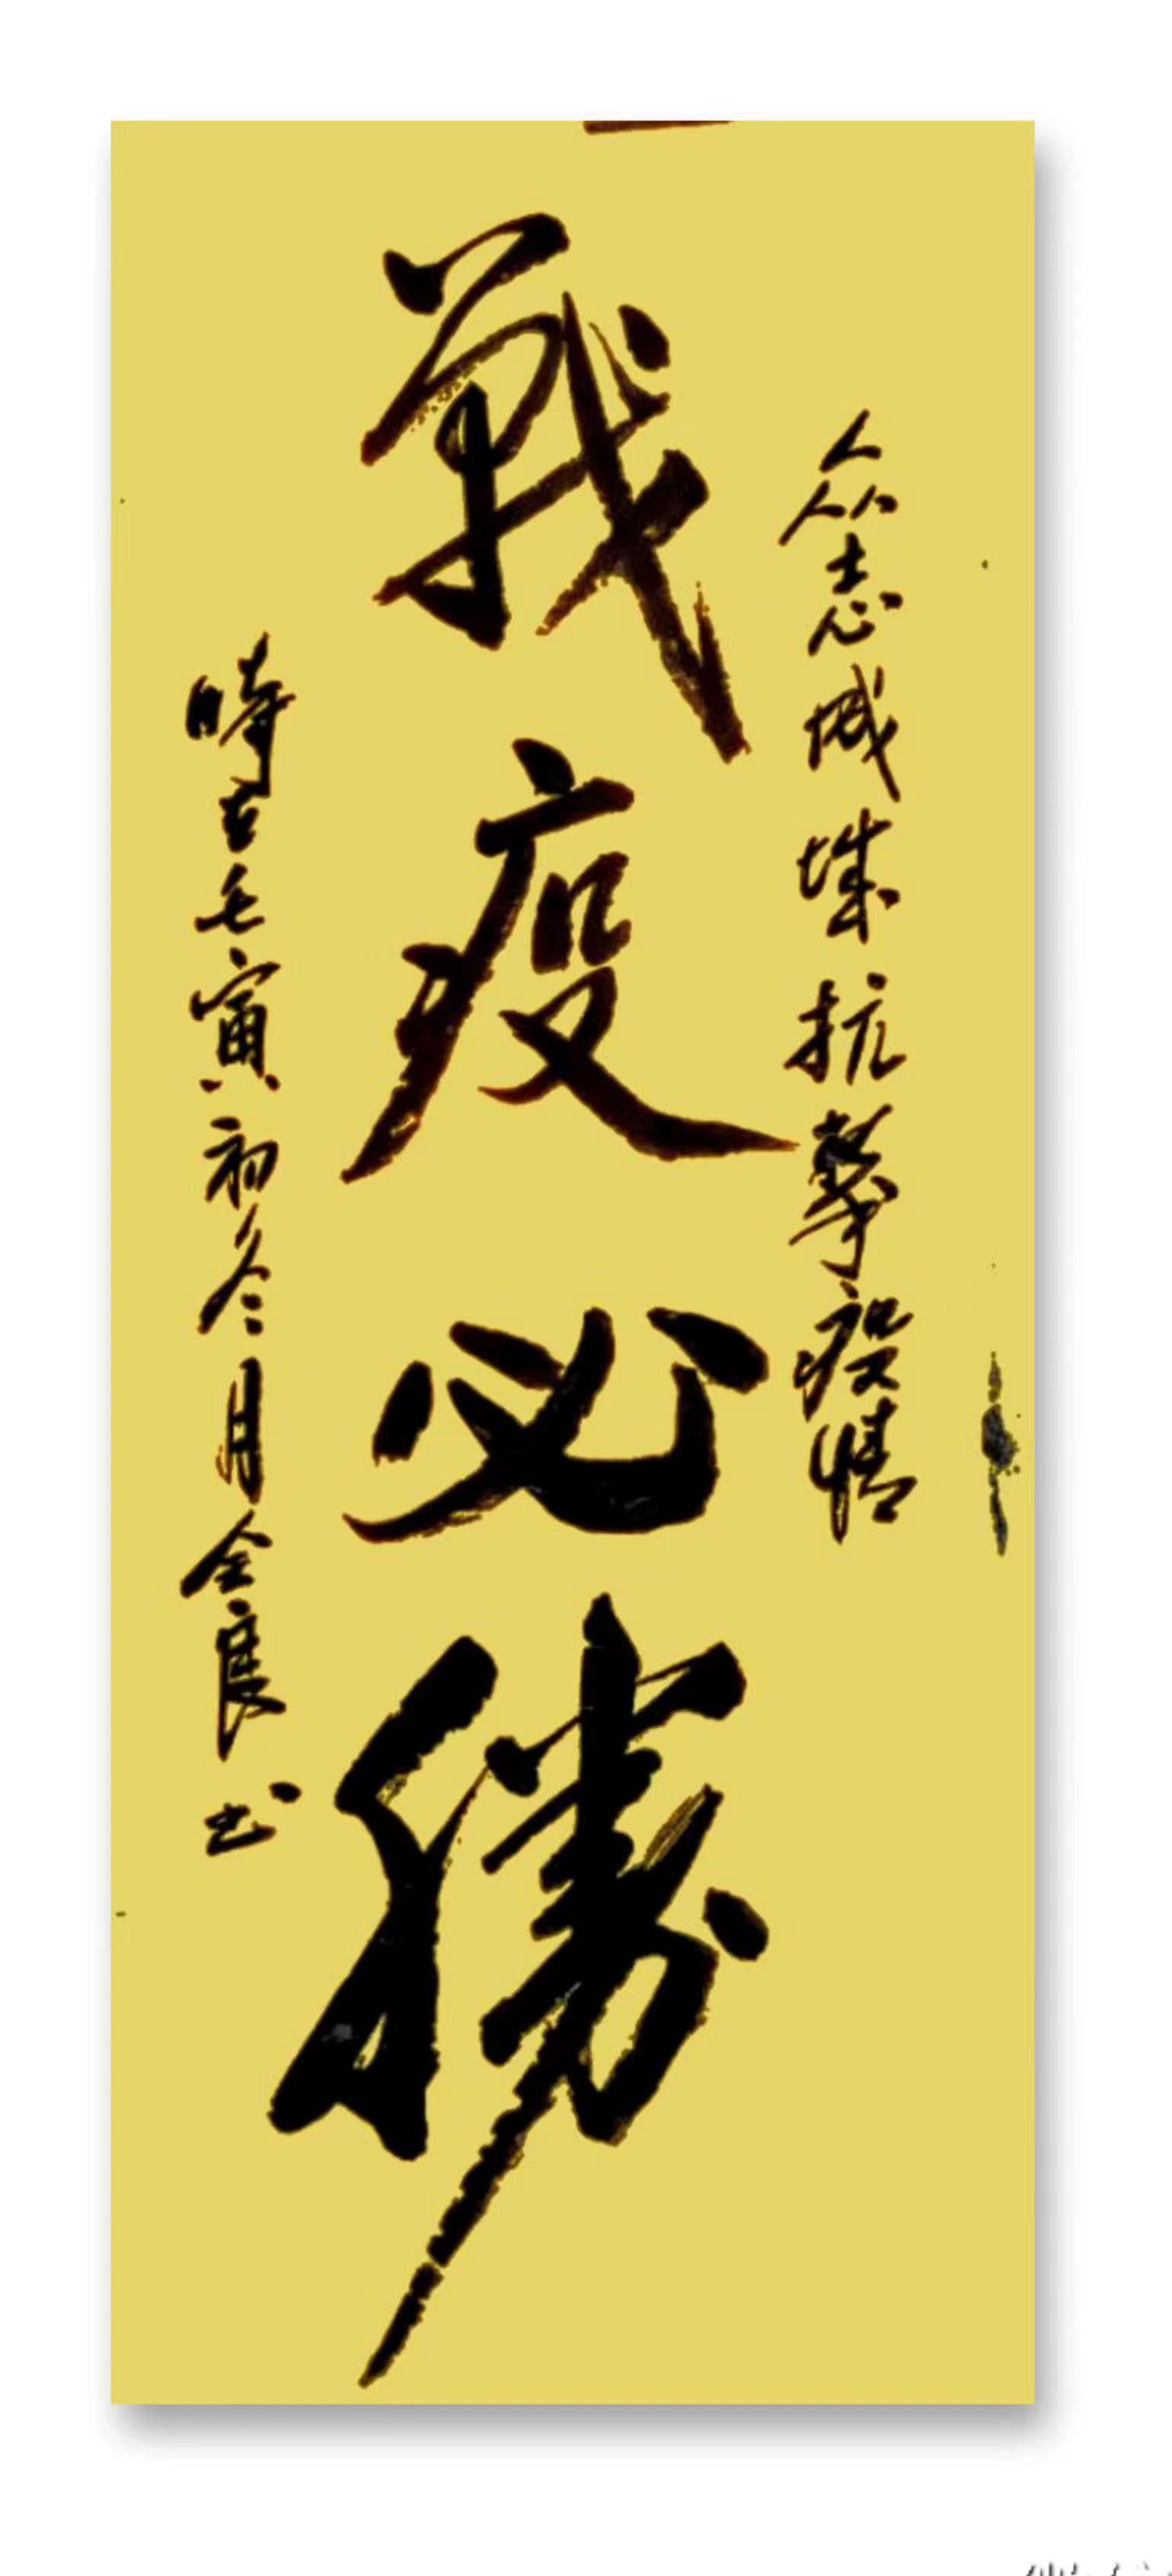 众志成城抗擊疫情
戰疫必勝
時在壬寅初冬月全良书